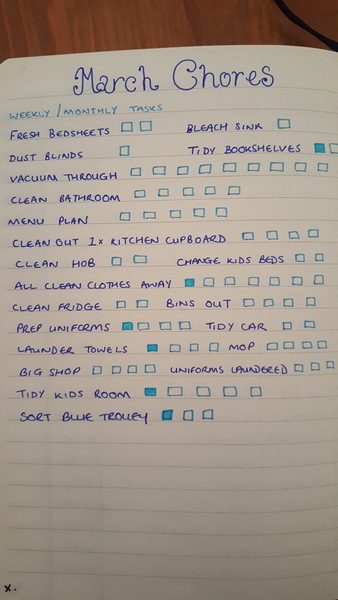 March Chores
WEEKLY/MONTHLY TASKS
FRESH BEDSHEETS BLEACH SINK
DUST BLINDS TIDY BOOKSHELVES
VACUUM THROUGH
CLEAN BATHROOM
MENU PLAN
CLEAN OUT 1x KITCHEN CUPBOARD
CLEAN HOB CHANGE KIDS BEDS
ALL CLEAN CLOTHES AWAY
CLEAN FRIDGE BINS OUT
PREP UNIFORMS TIDY CAR
LAUNDER TOWELS MOP
BIG SHOP UNIFORMS LAUNDERED
TIDY KIDS ROOM
SORT BLUE TROLLEY
x.